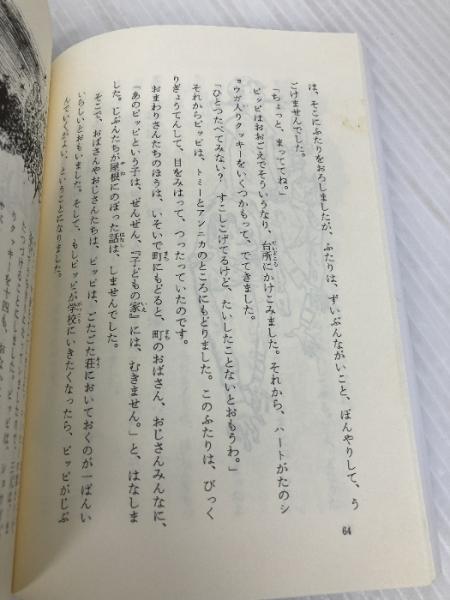 は、そこにふたりをおろしましたが、ふたりは、ずいぶんながいこと、ぼんやりして、う
ごけませんでした。
「ちょっと、まっててね。」
ピッピはおおごえでそういうなり、台所にかけこみました。それから、ハートがたのシ
ョウガ入りクッキーをいくつかもって、でてきました。
「ひとつたべてみない？ すこしこげてるけど、たいしたことないとおもうわ。」
それからピッピは、トミーとアンニカのところにもどりました。このふたりは、びっく
りぎょうてんして、目をみはって、つったっていたのです。
おまわりさんたちのほうは、いそいで町にもどると、町のおばさん、おじさんみんなに、
「あのピッピという子は、ぜんぜん、『子どもの家』には、むきません。」と、はなしま
した。じぶんたちが屋根にのぼった話は、しませんでした。
そこで、おばさんやおじさんたちは、ピッピは、ごたごた荘においておくのが一ばんい
いらしいとおもいました。そして、もしピッピが学校にいきたくなったら、ピッピがじぶ
んでいくがよい、ということになりました。
64